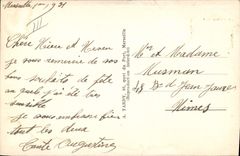 Marseille 1er 1931
III
Chère Nièce et Neveu
je vous remercie de vos
bons souhaits de fête
au quels j'ai été très
sensible
je vous embrasse bien
tout les deux
Tante Augustine
TARDY, 61, quai du Port, Marseille
Mr et Madame
Musman
48 Bd Jean Jaurès
Nîmes